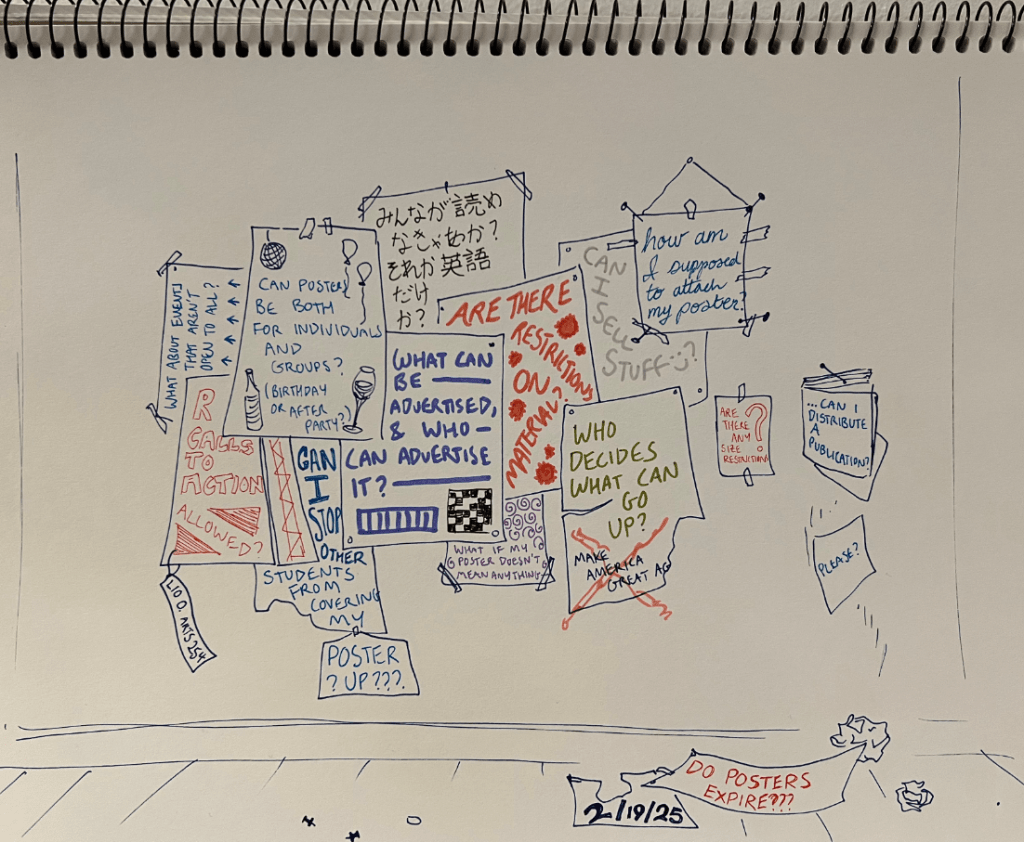 みんなが読め
なきゃあか?
それか英語
だけ
か?
how am
I supposed
to attach
my poster?
CAN POSTERS
BE BOTH
FOR INDIVIDUALS
AND
GROUPS?
(BIRTHDAY
OR AFTER
PARTY?)
WHAT ABOUT EVENTS
THAT AREN'T
OPEN TO ALL?
CAN
I
SELL
STUFF :)?
ARE THERE
RESTRICTIONS
ON
MATERIAL?
WHAT CAN
BE
ADVERTISED,
& WHO
CAN ADVERTISE
IT?
R
CALLS
TO
ACTION
ALLOWED?
WHO
DECIDES
WHAT CAN
GO
UP?
ARE
THERE
ANY
SIZE
RESTRICTIONS?
...CAN I
DISTRIBUTE
A
PUBLICATION?
PLEASE?
CAN
I
STOP
OTHER
STUDENTS
FROM
COVERING
MY
POSTER
?UP???.
WHAT IF MY
POSTER DOESN'T
MEAN ANYTHING
MAKE
AMERICA
GREAT AG
LIO O. ARTS 254
DO POSTERS
EXPIRE???
2/19/25